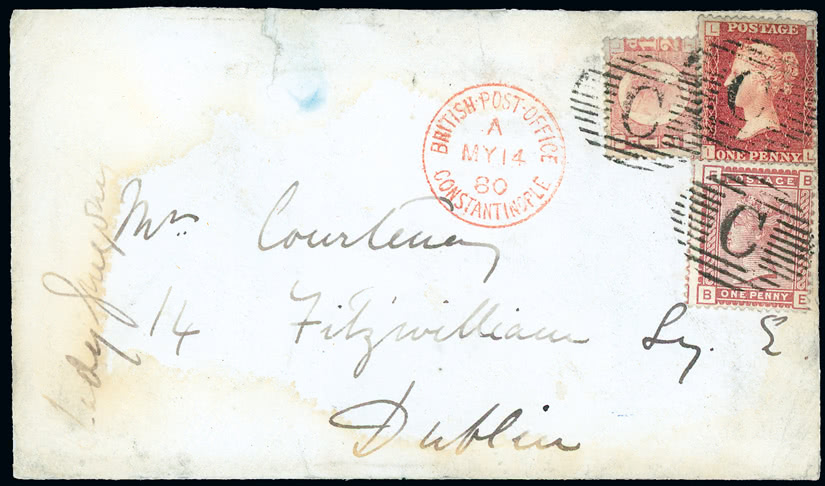 BRITISH·POST·OFFICE
A
MY 14
80
CONSTANTINOPLE
C
L I
POSTAGE
C
ONE PENNY
I L
E B
POSTAGE
C
B E
ONE PENNY
Mrs Courtenay
14 Fitzwilliam Sq. E.
Dublin